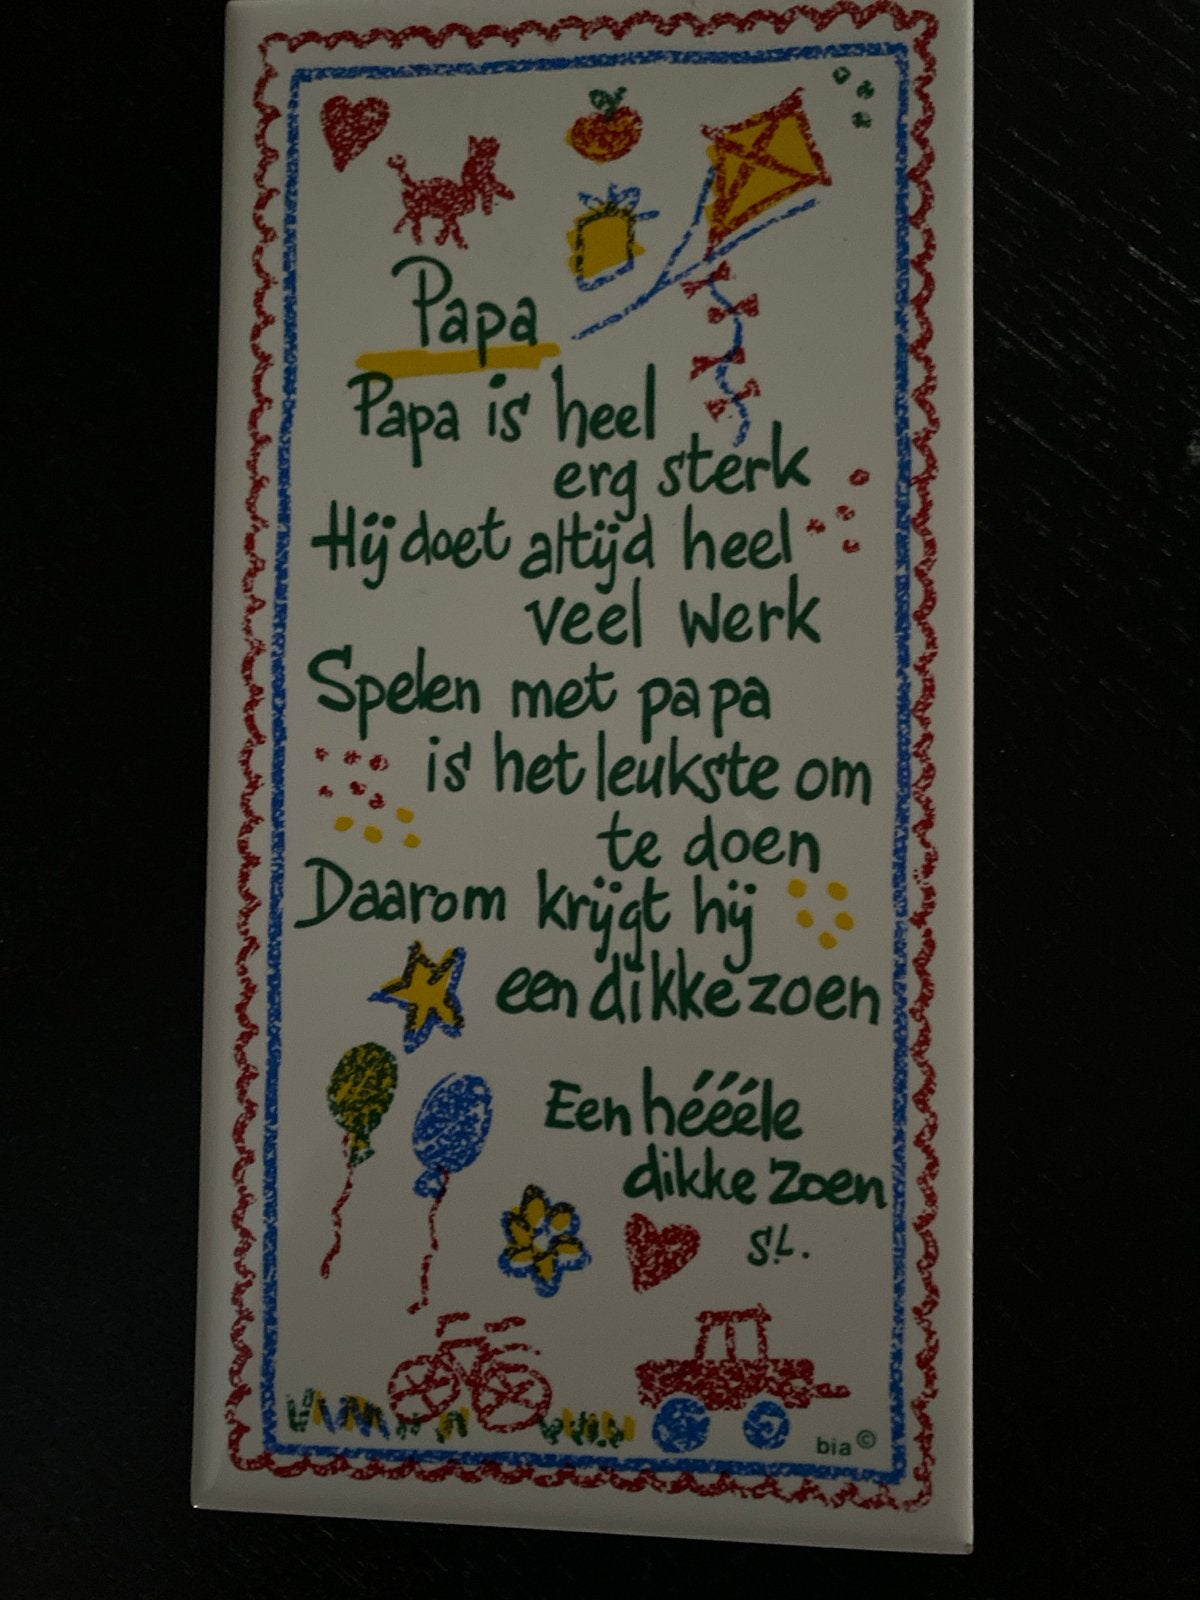 Papa
Papa is heel
erg sterk
Hij doet altijd heel
veel werk
Spelen met papa
is het leukste om
te doen
Daarom krijgt hij
een dikke zoen
Een hééële
dikke zoen
S.L.
bia©